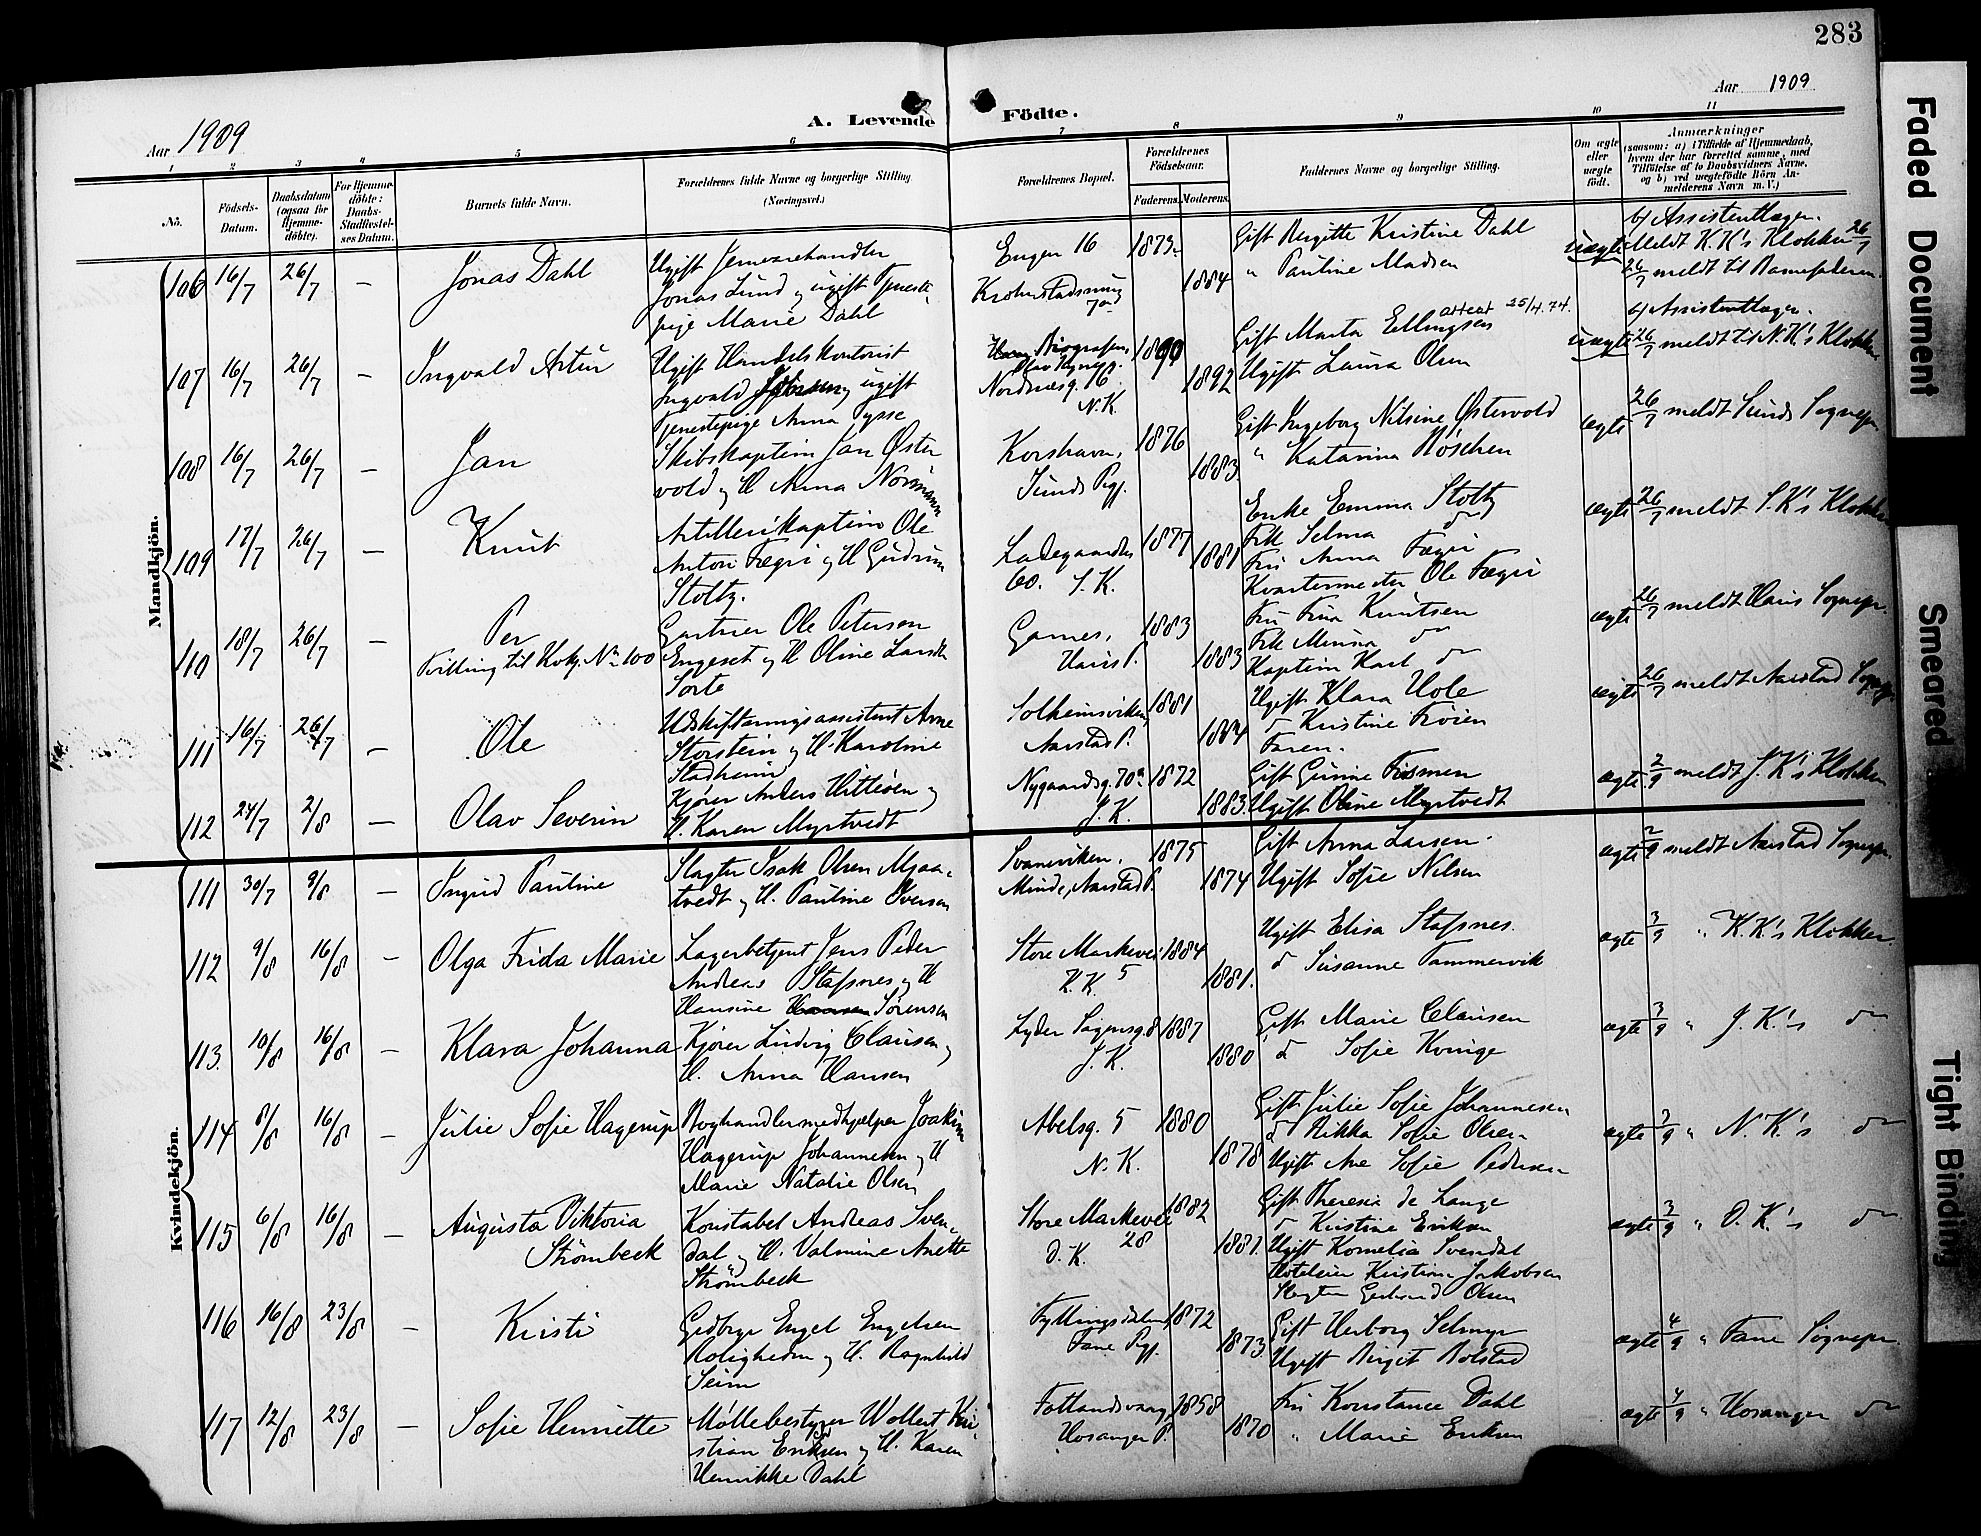 283
Aar 1909
A. Levende Födte.
Aar 1909
1 2 3 4 5 6 7 8 9 10 11
No.
Födsels-Datum.
Daabsdatum (ogsaa for Hjemme-döbte).
For Hjemme-döbte: Daabs-Stadfæstel-ses Datum.
Barnets fulde Navn.
Forældrenes fulde Navne og borgerlige Stilling
(Næringsvei.)
Forældrenes Bopæl.
Forældrenes Födselsaar.
Faderens. Moderens.
Faddernes Navne og borgerlige Stilling.
Om ægte eller uægte födt.
Anmærkninger
(saasom: a) i Tilfælde af Hjemmedaab, hvem der har forrettet samme, med Tilföielse af to Daabsvidners Navne, og b) ved uægtefödte Börn An-melderens Navn m. V.)
Mandkjön.
106 16/7 26/7 — Jonas Dahl
Ugift Jernvarehandler
Jonas Lund og ugift Tjeneste-
pige Marie Dahl
Engen 16
1873 1884
Gift Birgitte Kristine Dahl
" Pauline Madsen
uægte
b) Assistentlægen.
Meldt K.K's Klokker 26/7
26/7 meldt til Barnefaderen.
107 16/7 26/7 — Ingvald Artur
Ugift Handelskontorist
Ingvald og ugift
Tjenestepige Anna Tysse
Nordnesg. 16
N.K.
1890 1892
Gift Marta Ellingsen
Ugift Laura Olsen
uægte
b) Assistentlægen.
26/7 meldt til N.K's Klokker
108 16/7 26/7 — Jan
Skibskaptein Jan Øster
vold og H. Anna Normann
Korshavn,
Sunds Pgj.
1876 1883
Gift Ingeborg Nilsine Østervold
" Katarina Röschen
ægte
26/7 meldt Sunds Sognepr.
109 17/7 26/7 — Knut
Artillerikaptein Ole
Anton Fægri og H Gudrun
Stoltz.
Ladegaardsg.
60. S.K.
1877 1881
Enke Emma Stoltz
Frk Selma do
Fru Anna Fægri
Kvartermester Ole Fægri
ægte
26/7 meldt S.K's Klokker
110 18/7 26/7 — Per
Tvilling til Kvkj. No 100
Gartner Ole Petersen
Engeset og H Oline Larsdtr
Sorte
Garnes,
Haus P.
1883 1883
Fru Fina Knutsen
Frk Minna do
Kaptein Karl do
ægte
26/7 meldt Haus Sognepr.
111 16/7 26/7 — Ole
Udskiftningsassistent Arne
Storstein og H. Karoline
Stadheim
Solheimsviken,
Aarstad P.
1881 1884
Ugift Klara Hole
do Kristine Frøien
Faren.
ægte
26/7 meldt Aarstad Sognepr.
112 24/7 2/8 — Olav Severin
Kjører Anders Hitleøen og
H. Karen Myrtvedt
Nygaardsg. 70a
J.K.
1872 1883.
Gift Gunne Fosmen
Ugift Oline Myrtvedt
ægte
2/9 meldt J.K's Klokker
Kvindekjön.
111 30/7 9/8 — Ingrid Pauline
Slagter Isak Olsen Mjaa-
tvedt og H. Pauline Iversen
Svaneviken,
Minde, Aarstad P.
1875 1874
Gift Anna Larsen.
Ugift Sofie Nilsen
ægte
2/9 meldt Aarstad Sognepr.
112 9/8 16/8 — Olga Frida Marie
Lagerbetjent Jens Peder
Andreas Stafsnes og H
Hansine Hansen Sørensen
Store Markevei
K.K. 5
1884 1881.
Ugift Elisa Stafsnes.
do Susanne Tammervik
ægte
3/9 " K.K's Klokker.
113. 10/8 16/8 — Klara Johanna
Kjører Ludvig Clausen og
H. Anna Hansen
Lyder Sagensg. 8
J.K.
1887 1880
Gift Marie Clausen
do Sofie Kvinge
ægte
3/9 " J.K.'s do
114 8/8 16/8 — Julie Sofie Hagerup
Boghandlermedhjelper Joakim
Hagerup Johannesen og H
Marie Natalie Olsen
Abelsg. 5
N.K.
1880 1878
Gift Julie Sofie Johannesen
do Rikka Sofie Olsen
Ugift Ane Sofie Pedersen
ægte
3/9 " N.K.'s do
115 6/8 16/8 — Augusta Viktoria
Strømbeck
Konstabel Andreas Sven-
dal og H. Valmine Anette
Strømbeck
Store Markevei
D.K. 28
1882 1881.
Gift Theresia de Lange
do Kristine Eriksen
Ugift Kornelia Svendal
Hoteleier Kristian Jakobsen
Slagter Gerhard Olsen
ægte
3/9 " D.K.'s do
116 16/8 23/8 — Kristi
Gårdbr. Engel Engelsen
Roligheden og H. Ragnhild
Seim
Fyllingsdalen,
Fane Pgj.
1872 1873.
Gift Herborg Selmyr
Ugift Birgit Bolstad
ægte
4/9 " Fane Sognepr.
117 12/8 23/8 — Sofie Henriette
Møllebestyrer Wollert Kri-
stian Eriksen og H. Karen
Henrikke Dahl
Fotlandsvaag,
Hosanger P.
1858 1870
Fru Konstance Dahl
" Marie Eriksen
ægte
4/9 " Hosanger do
Faded Document
Smeared
Tight Binding